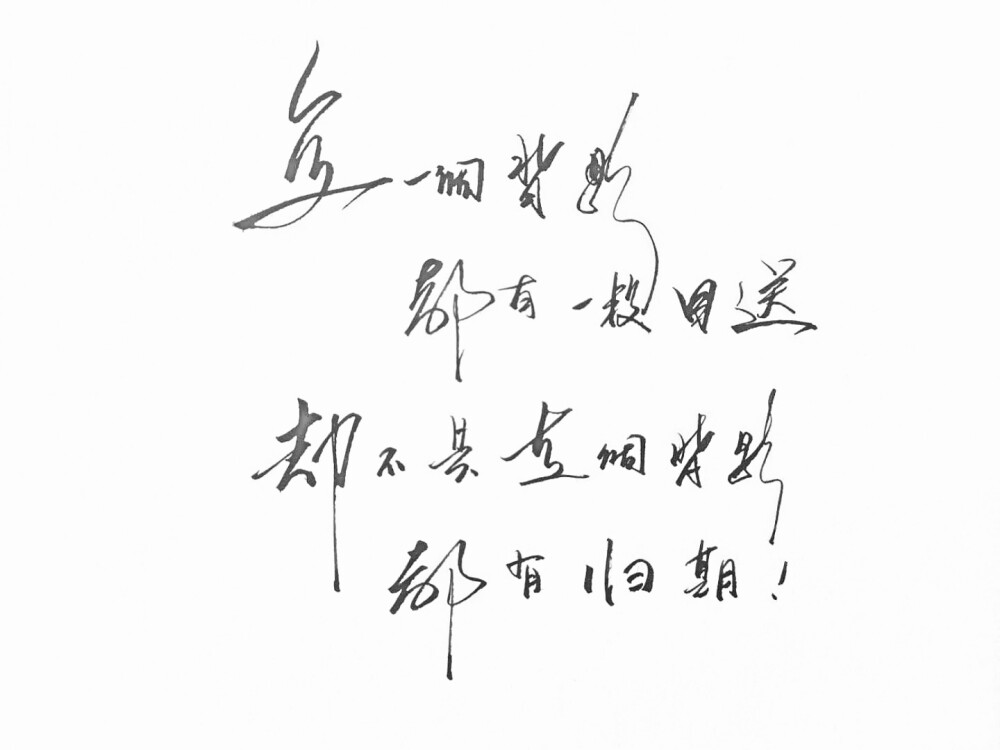 每一個背影
都有一段目送
却不是每個背影
都有归期!